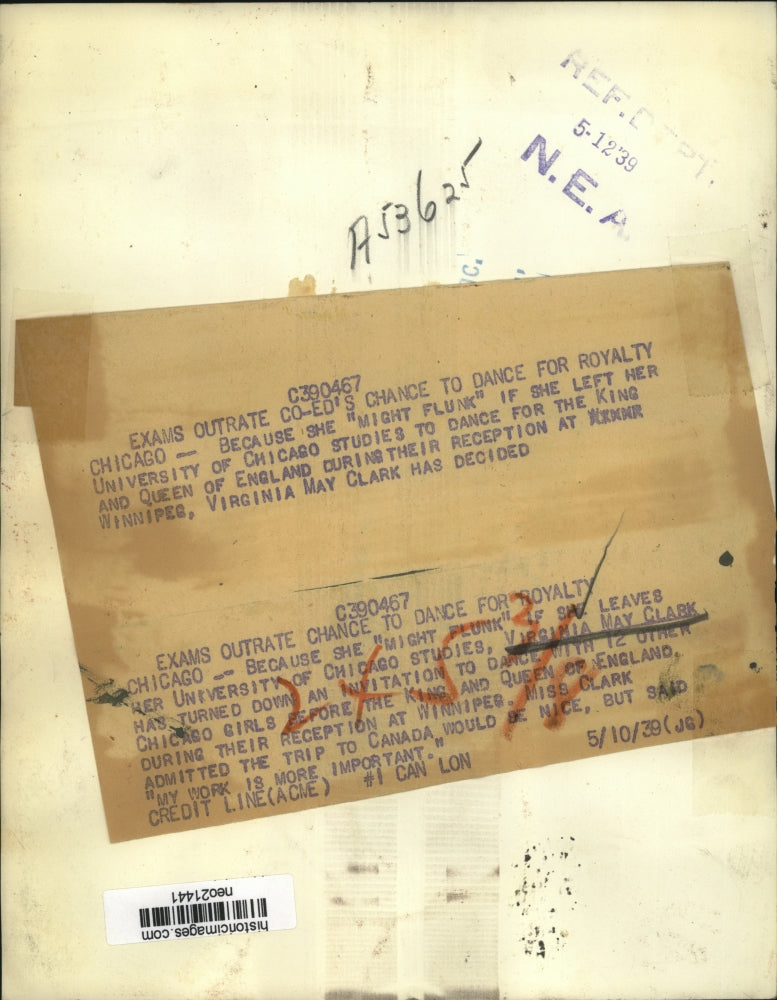 REF. DEPT.
5-12'39
N.E.A.
A53625
NC.
C390467
EXAMS OUTRATE CO-ED'S CHANCE TO DANCE FOR ROYALTY
CHICAGO -- BECAUSE SHE "MIGHT FLUNK" IF SHE LEFT HER
UNIVERSITY OF CHICAGO STUDIES TO DANCE FOR THE KING
AND QUEEN OF ENGLAND DURING THEIR RECEPTION AT XXXXXX
WINNIPEG, VIRGINIA MAY CLARK HAS DECIDED
C390467
EXAMS OUTRATE CHANCE TO DANCE FOR ROYALTY
CHICAGO -- BECAUSE SHE "MIGHT FLUNK" IF SHE LEAVES
HER UNIVERSITY OF CHICAGO STUDIES, VIRGINIA MAY CLARK
HAS TURNED DOWN AN INVITATION TO DANCE WITH 12 OTHER
CHICAGO GIRLS BEFORE THE KING AND QUEEN OF ENGLAND,
DURING THEIR RECEPTION AT WINNIPEG. MISS CLARK
ADMITTED THE TRIP TO CANADA WOULD BE NICE, BUT SAID
"MY WORK IS MORE IMPORTANT."
CREDIT LINE(ACME) #1 CAN LON 5/10/39(JG)
2 x 5
historicimages.com
neo21441